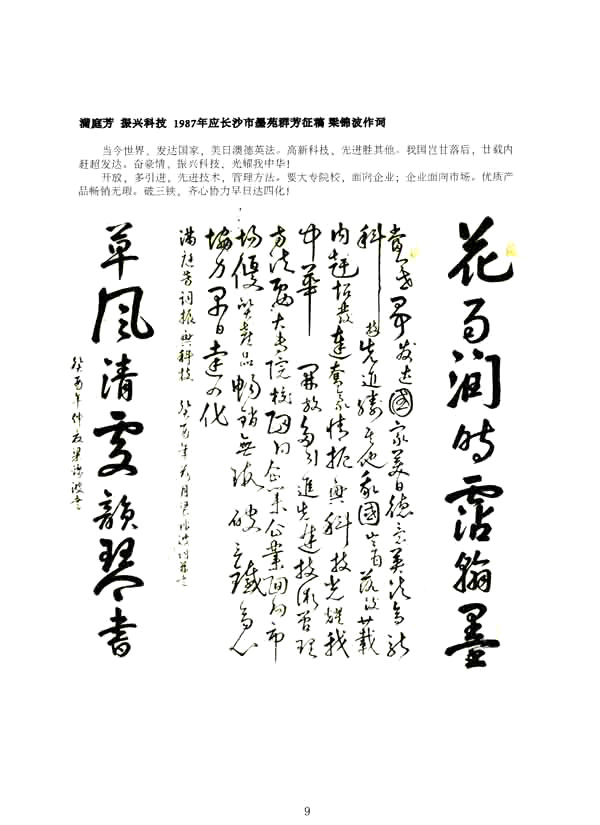 满庭芳 振兴科技 1987年应长沙市墨苑群芳征稿 梁锦波作词
当今世界，发达国家，美日澳德英法。高新科技，先进胜其他。我国岂甘落后，廿载内
赶超发达。奋豪情，振兴科技，光耀我中华！
开放，多引进，先进技术，管理方法。要大专院校，面向企业；企业面向市场。优质产
品畅销无瑕。破三铁，齐心协力早日达四化！
花雨润时霑翰墨
发达國家美日德意英法高新
科技先進勝其他我國岂甘落後廿載
内赶超发達奮豪情振興科技光耀我
中華 開放多引進先進技術管理
方法要大专院校面向企業企業面向市
場優質產品畅銷無瑕破三鐵齐心
協力早日達四化
满庭芳词振興科技 癸酉年月梁锦波词并书
草风清处韻琴書
癸酉年仲夏梁锦波书
9